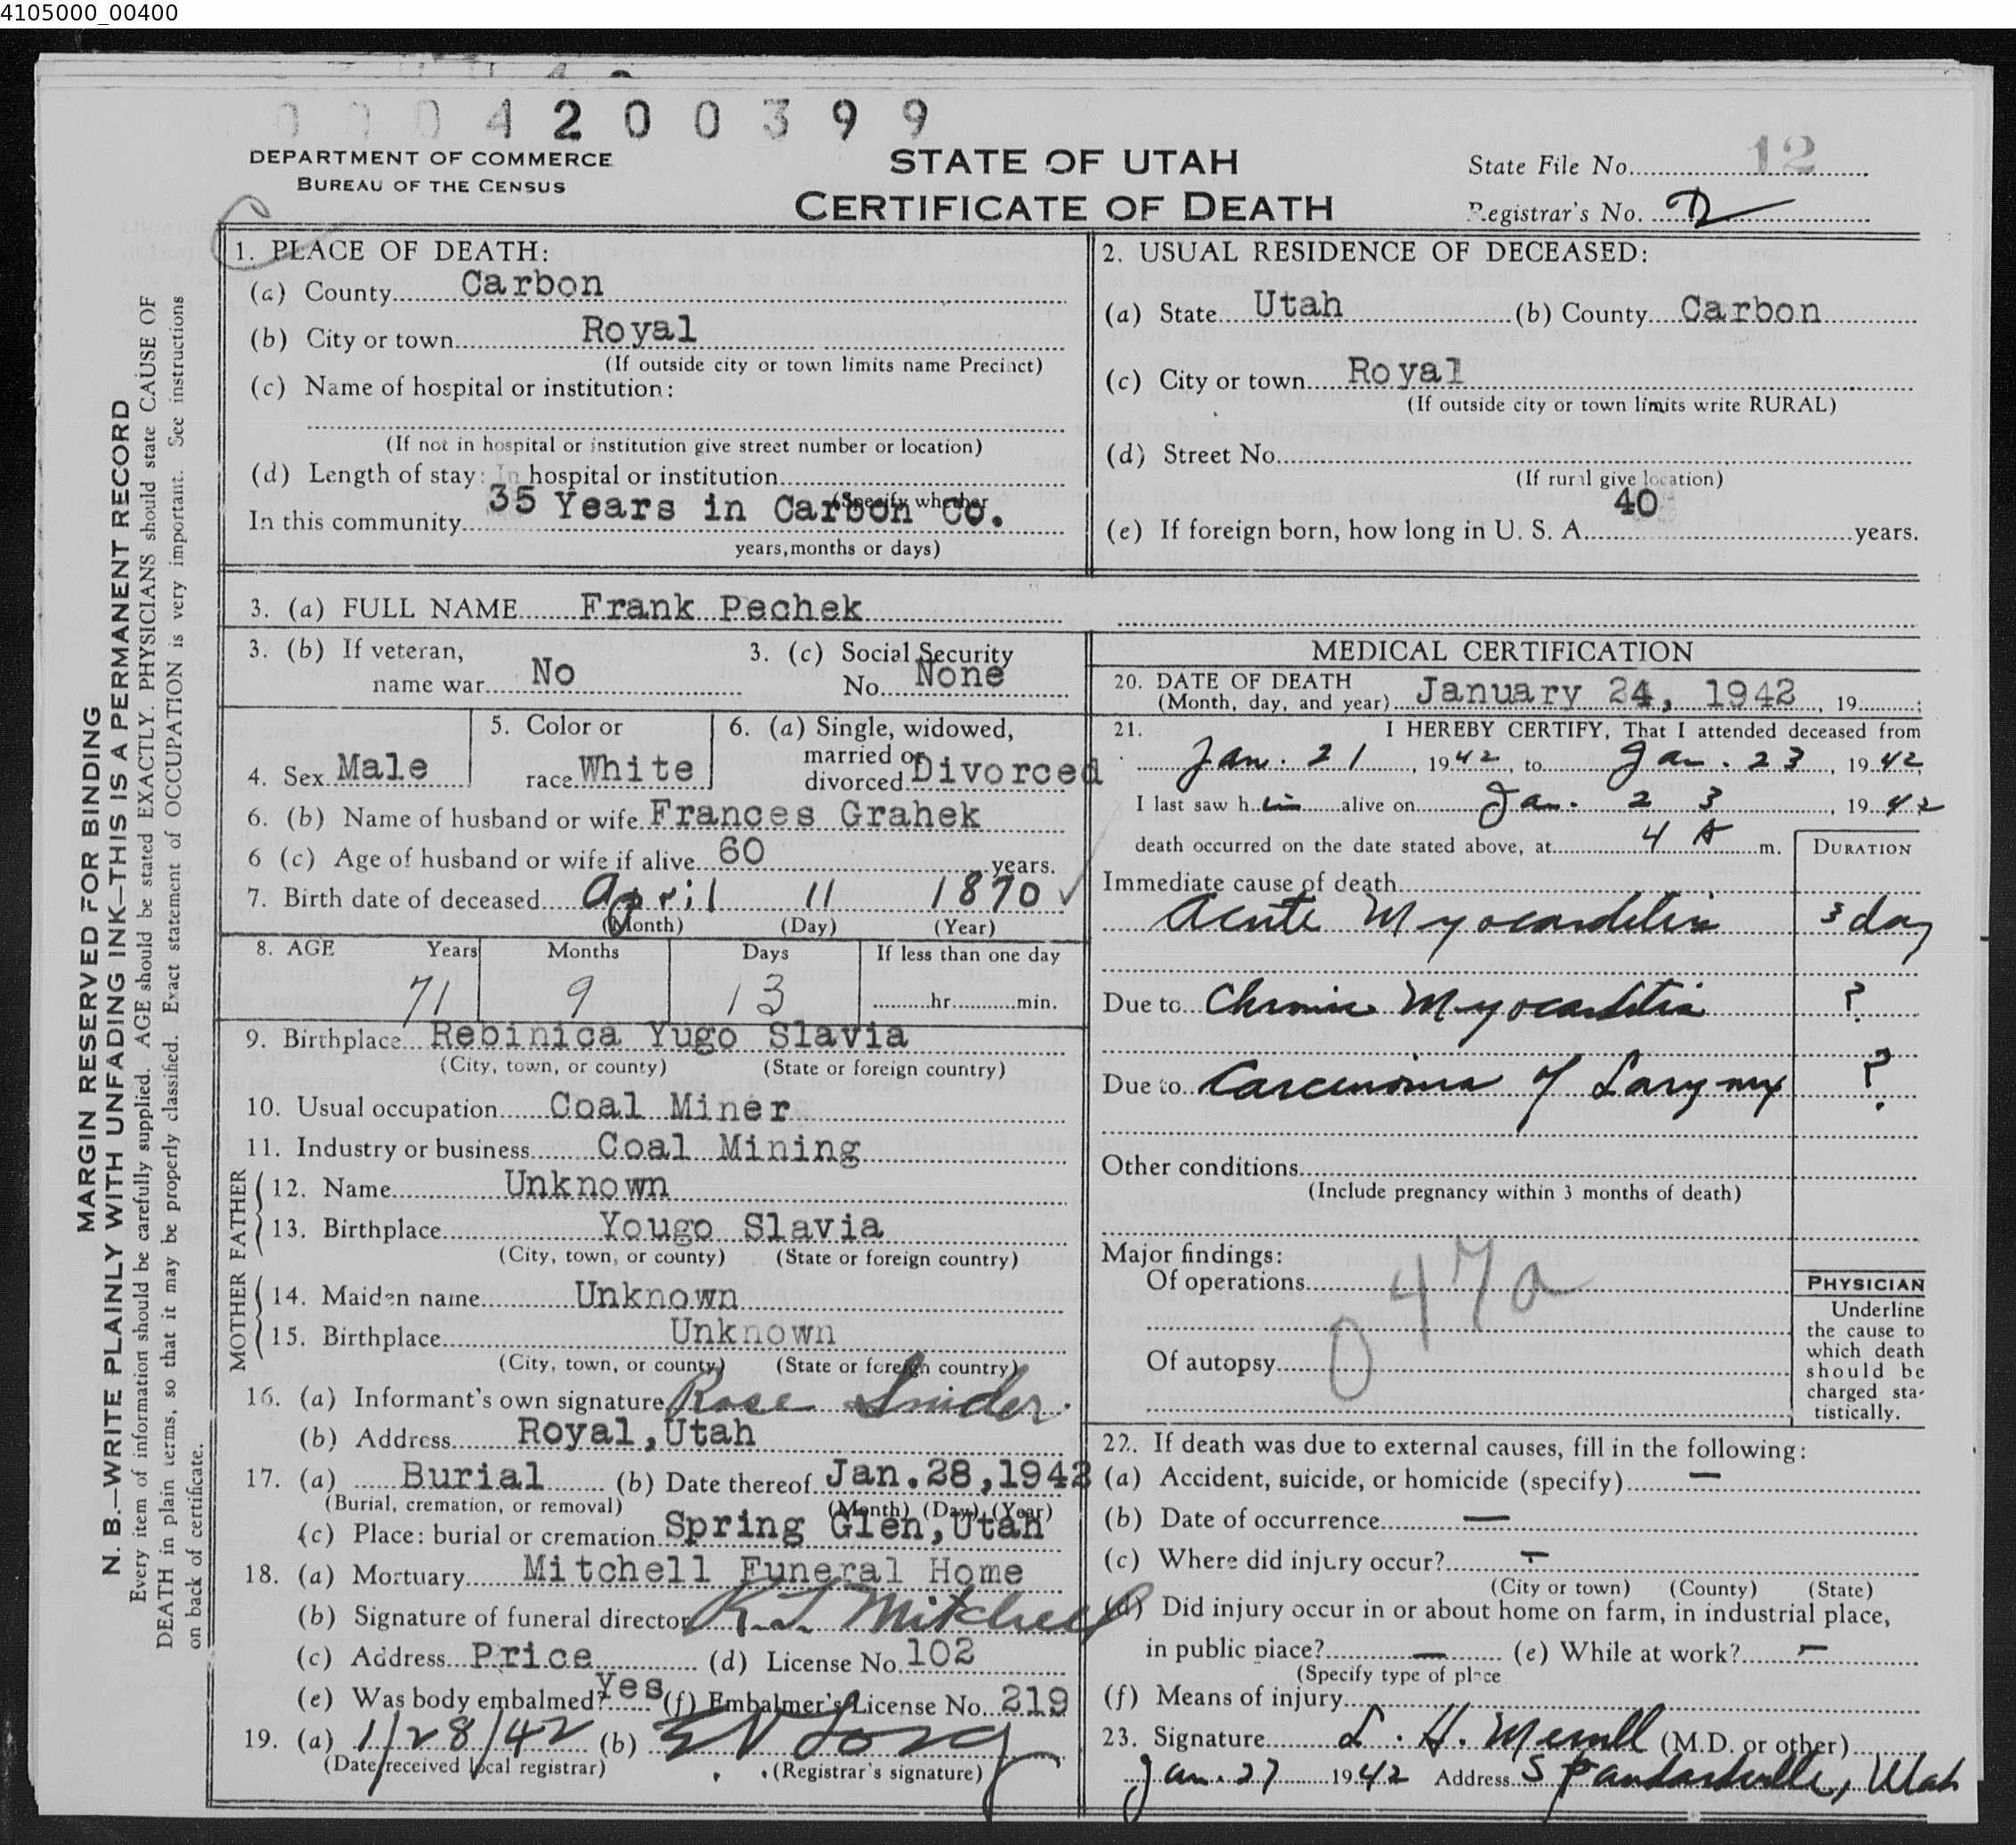 4105000_00400
0004200399
DEPARTMENT OF COMMERCE
BUREAU OF THE CENSUS
STATE OF UTAH
CERTIFICATE OF DEATH
State File No. 12
Registrar's No.
MARGIN RESERVED FOR BINDING
N. B.—WRITE PLAINLY WITH UNFADING INK—THIS IS A PERMANENT RECORD
Every item of information should be carefully supplied. AGE should be stated EXACTLY. PHYSICIANS should state CAUSE OF
DEATH in plain terms, so that it may be properly classified. Exact statement of OCCUPATION is very important. See instructions
on back of certificate.
1. PLACE OF DEATH:
(a) County Carbon
(b) City or town Royal
(If outside city or town limits name Precinct)
(c) Name of hospital or institution:
(If not in hospital or institution give street number or location)
(d) Length of stay: In hospital or institution
(Specify whether
In this community 35 Years in Carbon Co.
years, months or days)
2. USUAL RESIDENCE OF DECEASED:
(a) State Utah (b) County Carbon
(c) City or town Royal
(If outside city or town limits write RURAL)
(d) Street No.
(If rural give location)
(e) If foreign born, how long in U. S. A. 40 years.
3. (a) FULL NAME Frank Pechek
3. (b) If veteran,
name war No
3. (c) Social Security
No. None
4. Sex Male
5. Color or
race White
6. (a) Single, widowed,
married or
divorced Divorced
6. (b) Name of husband or wife Frances Grahek
6 (c) Age of husband or wife if alive 60 years.
7. Birth date of deceased April 11 1870
(Month) (Day) (Year)
8. AGE Years Months Days If less than one day
71 9 13 hr. min.
9. Birthplace Rebinica Yugo Slavia
(City, town, or county) (State or foreign country)
10. Usual occupation Coal Miner
11. Industry or business Coal Mining
FATHER
12. Name Unknown
13. Birthplace Yougo Slavia
(City, town, or county) (State or foreign country)
MOTHER
14. Maiden name Unknown
15. Birthplace Unknown
(City, town, or county) (State or foreign country)
16. (a) Informant's own signature Rose Snider
(b) Address Royal, Utah
17. (a) Burial (b) Date thereof Jan. 28, 1942
(Burial, cremation, or removal) (Month) (Day) (Year)
(c) Place: burial or cremation Spring Glen, Utah
18. (a) Mortuary Mitchell Funeral Home
(b) Signature of funeral director Mitchell
(c) Address Price (d) License No. 102
(e) Was body embalmed? Yes (f) Embalmer's License No. 219
19. (a) 1/28/42 (b)
(Date received local registrar) (Registrar's signature)
MEDICAL CERTIFICATION
20. DATE OF DEATH
(Month, day, and year) January 24, 1942, 19 ;
21. I HEREBY CERTIFY, That I attended deceased from
Jan. 21, 1942, to Jan. 23, 1942,
I last saw him alive on Jan. 23, 1942
death occurred on the date stated above, at 4 A m.
DURATION
Immediate cause of death
Acute Myocarditis 3 day
Due to Chronic Myocarditis ?
Due to Carcinoma of Larynx ?
Other conditions
(Include pregnancy within 3 months of death)
Major findings:
Of operations
047a
Of autopsy
PHYSICIAN
Underline
the cause to
which death
should be
charged sta-
tistically.
22. If death was due to external causes, fill in the following:
(a) Accident, suicide, or homicide (specify) —
(b) Date of occurrence —
(c) Where did injury occur? —
(City or town) (County) (State)
(d) Did injury occur in or about home on farm, in industrial place,
in public place? — (e) While at work? —
(Specify type of place
(f) Means of injury
23. Signature L. H. Merrill (M.D. or other)
Jan. 27 1942 Address Standardville, Utah